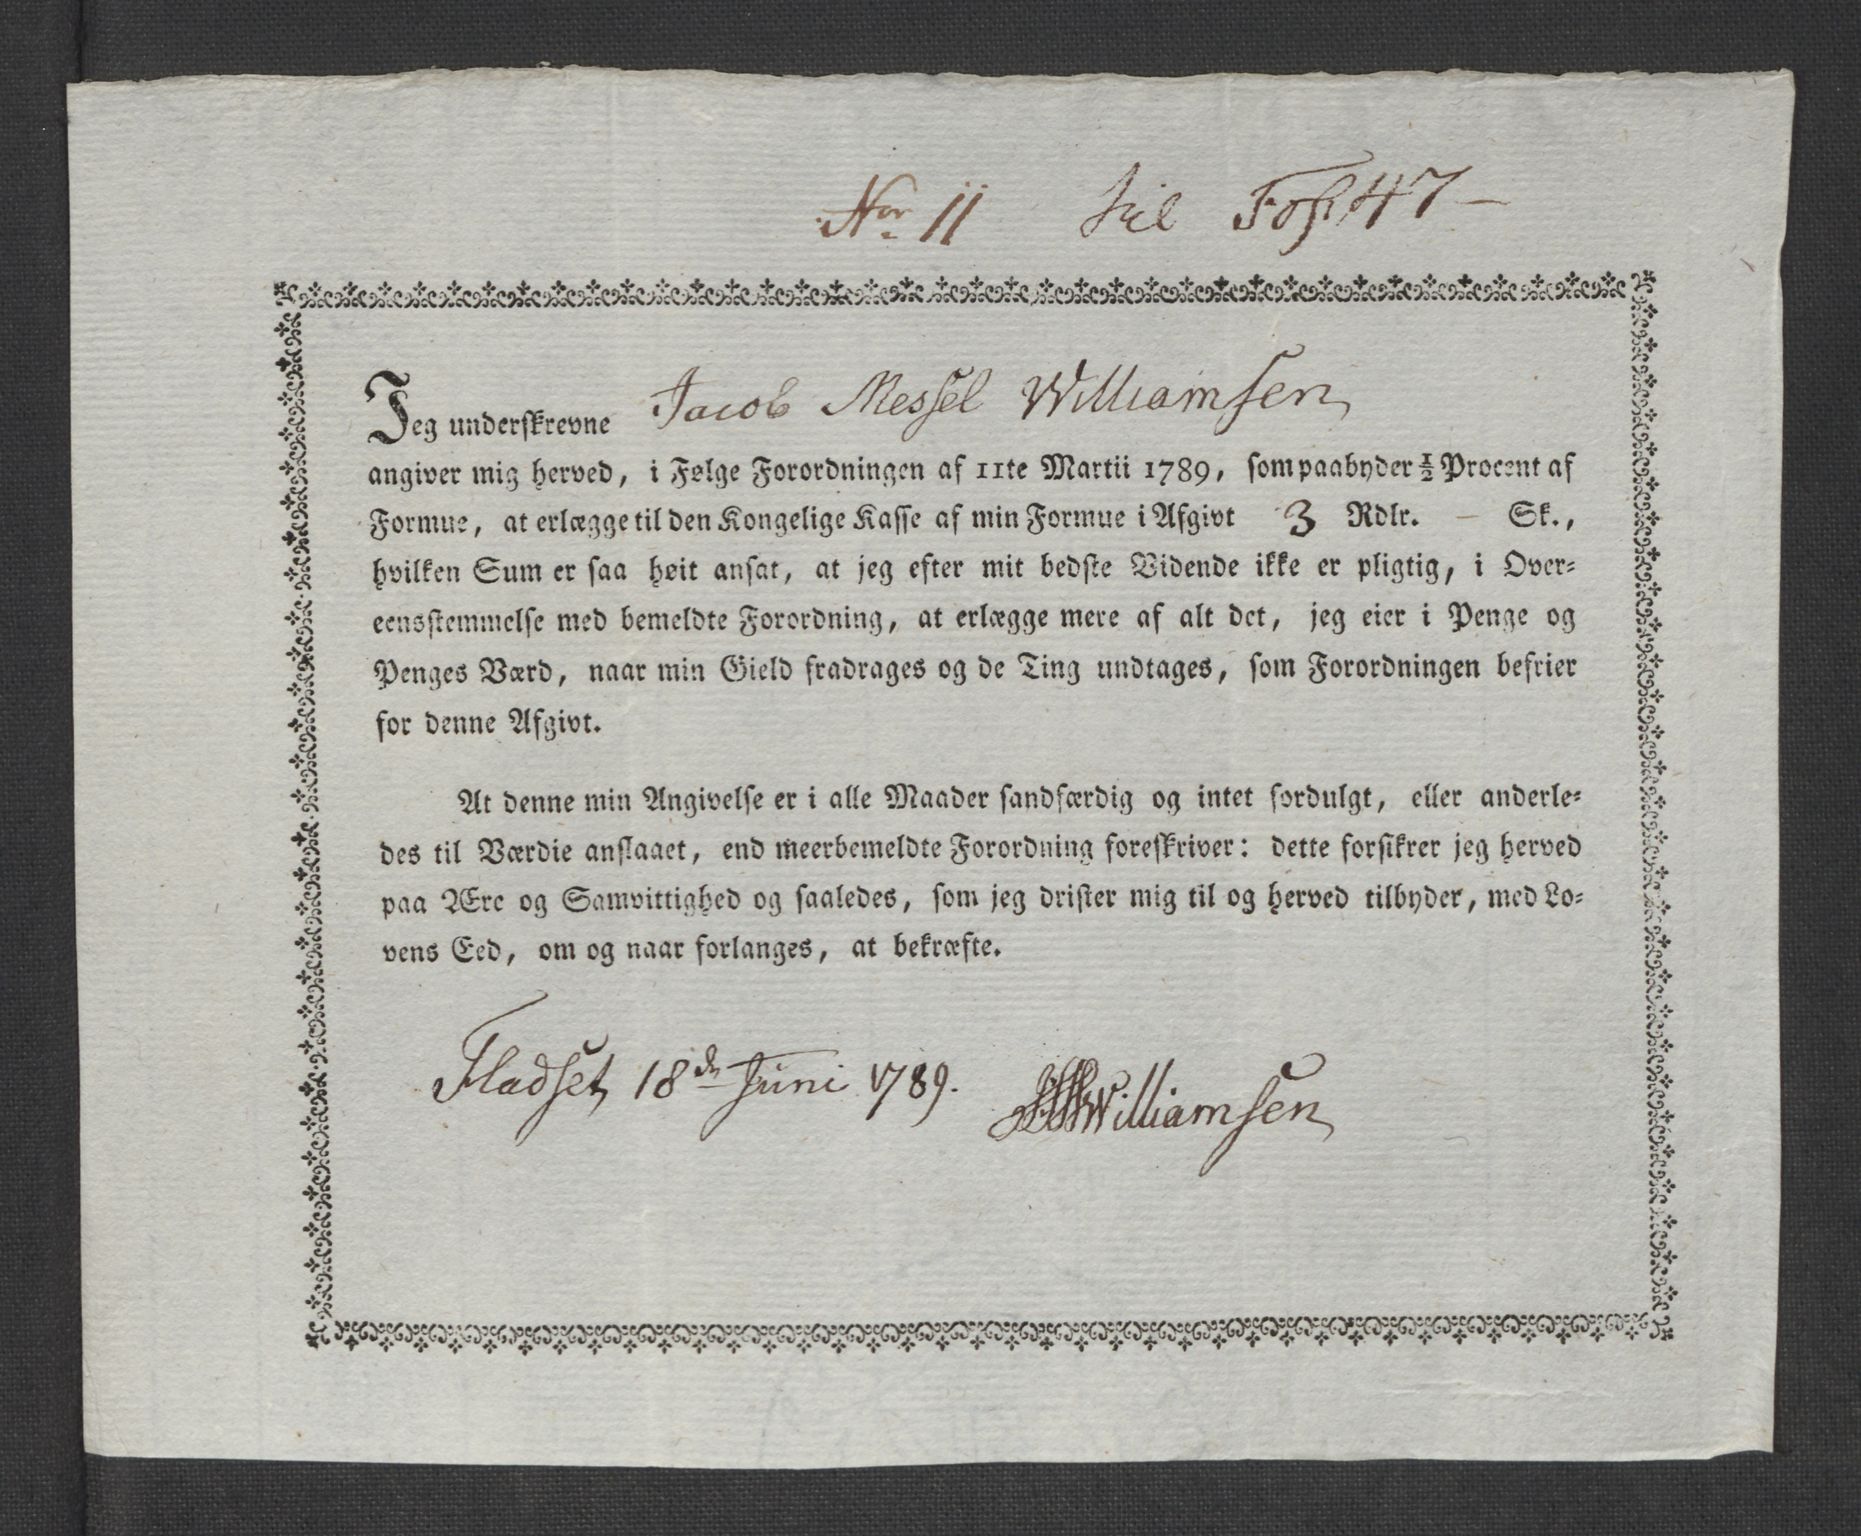 Nor 11 til Fol 47 –
Jeg underskrevne Jacob Messel Williamsen
angiver mig herved, i Følge Forordningen af 11te Martii 1789, som paabyder ½ Procent af
Formue, at erlægge til den Kongelige Kasse af min Formue i Afgivt 3 Rdlr. – Sk.,
hvilken Sum er saa høit ansat, at jeg efter mit bedste Vidende ikke er pligtig, i Over=
eensstemmelse med bemeldte Forordning, at erlægge mere af alt det, jeg eier i Penge og
Penges Værd, naar min Gield fradrages og de Ting undtages, som Forordningen befrier
for denne Afgivt.
At denne min Angivelse er i alle Maader sandfærdig og intet fordulgt, eller anderle=
des til Værdie anslaaet, end meerbemeldte Forordning foreskriver: dette forsikrer jeg herved
paa Ære og Samvittighed og saaledes, som jeg drister mig til og herved tilbyder, med Lo=
vens Eed, om og naar forlanges, at bekræfte.
Fladset 18de Juni 1789. JMWilliamsen